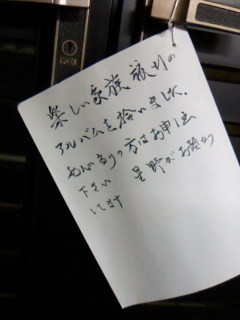 楽しい家族旅行の
アルバムを拾いました。
心あたりの方はお申出
下さい 星野がお預かり
してます